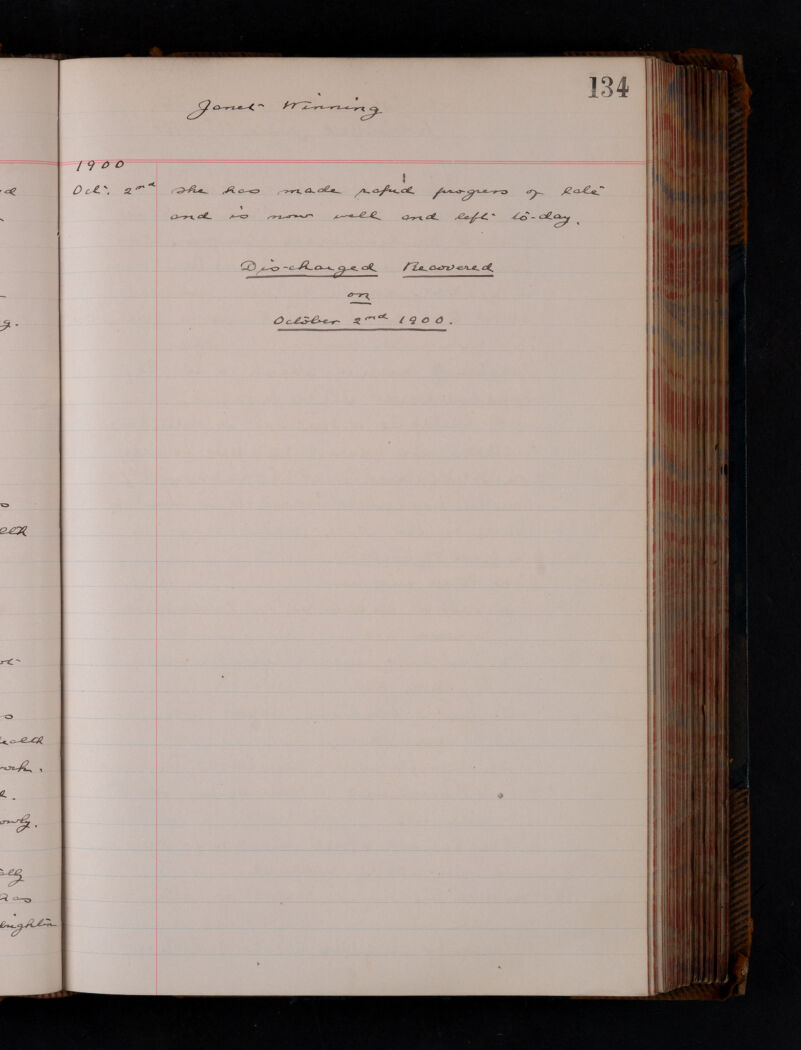 134
Janet Winning
1900
Oct. 2nd She has made rapid progress of late
and is now well and left to-day.
Discharged Recovered
on
October 2nd 1900.